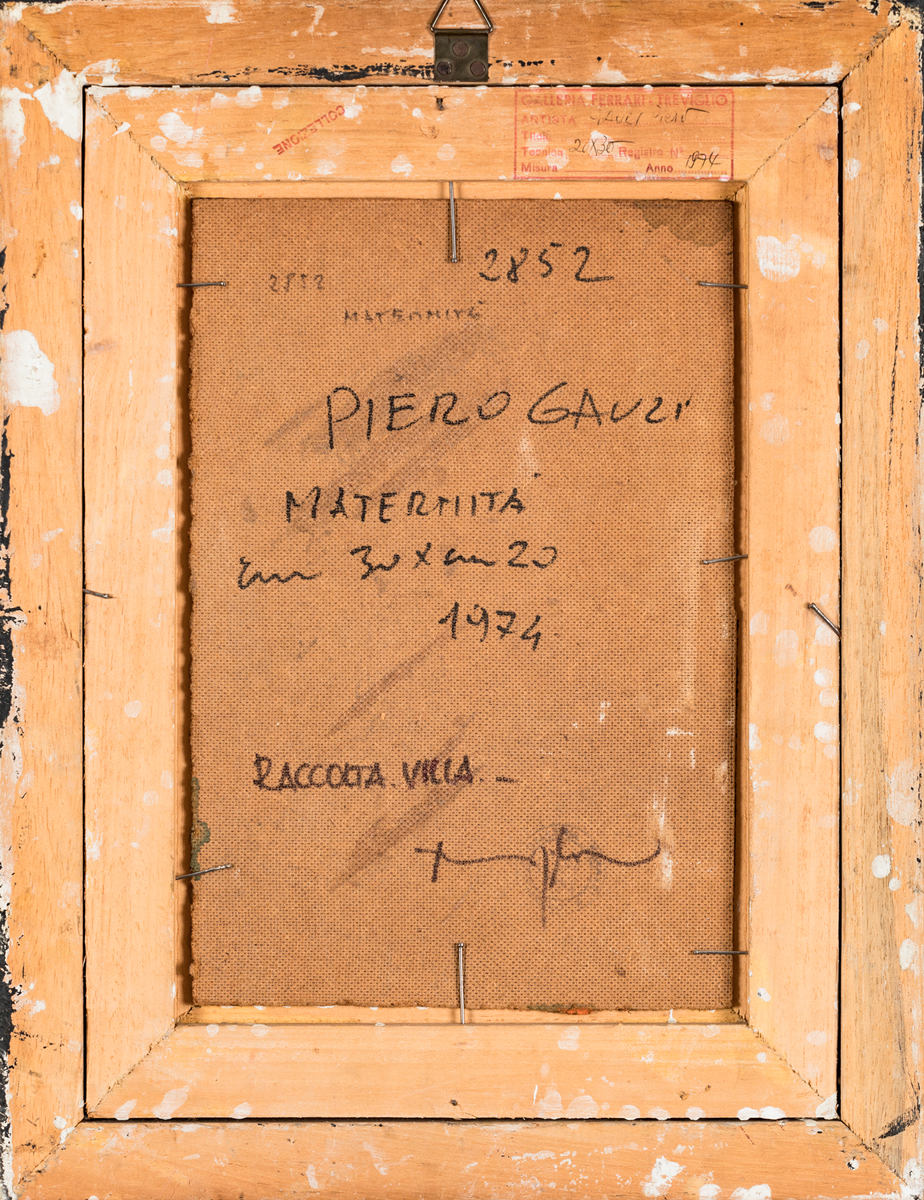 GALLERIA FERRARI - TREVIGLIO
ARTISTA
Titolo
Tecnica 20X30 Registro N°
Misura Anno 1974
COLLEZIONE
2852
2852
MATERNITÀ
PIERO GAULI
MATERNITÀ
cm 30 x cm 20
1974
RACCOLTA VILLA.